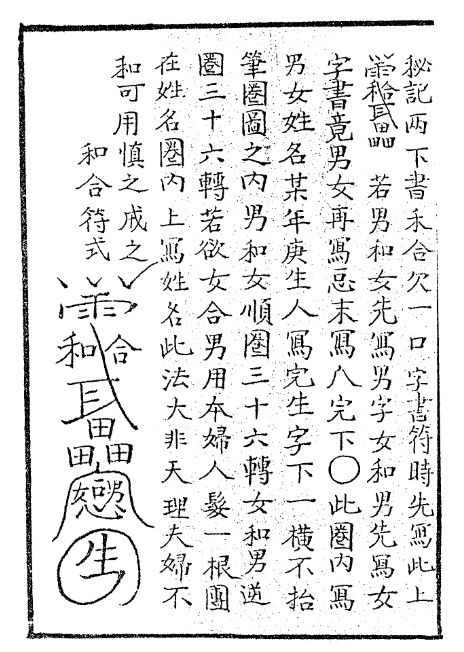 秘記兩下書禾合欠一口字書符時先寫此上
若男和女先寫男字女和男先寫女
字書竟男女再寫惡末寫八完下〇此圈內寫
男女姓名某年庚生人寫完生字下一橫不抬
筆圈圖之內男和女順圈三十六轉女和男逆
圈三十六轉若欲女合男用本婦人髮一根團
在姓名圈內上寫姓名此法大非天理夫婦不
和可用慎之戒之
和合符式
和合
田田田
女男
生